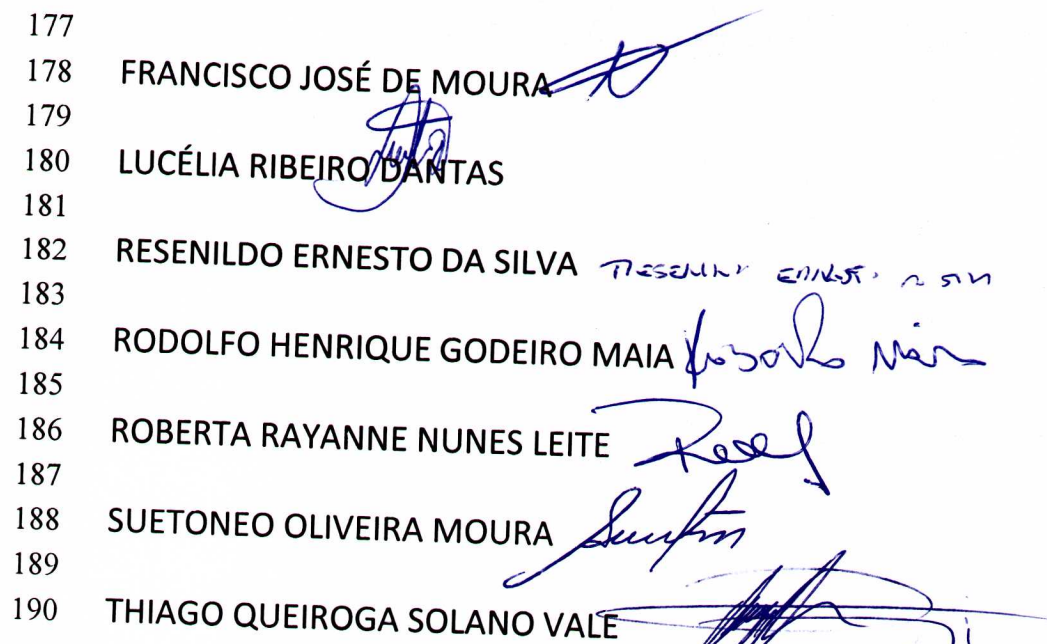 177
178 FRANCISCO JOSÉ DE MOURA
179
180 LUCÉLIA RIBEIRO DANTAS
181
182 RESENILDO ERNESTO DA SILVA
183
184 RODOLFO HENRIQUE GODEIRO MAIA
185
186 ROBERTA RAYANNE NUNES LEITE
187
188 SUETONEO OLIVEIRA MOURA
189
190 THIAGO QUEIROGA SOLANO VALE